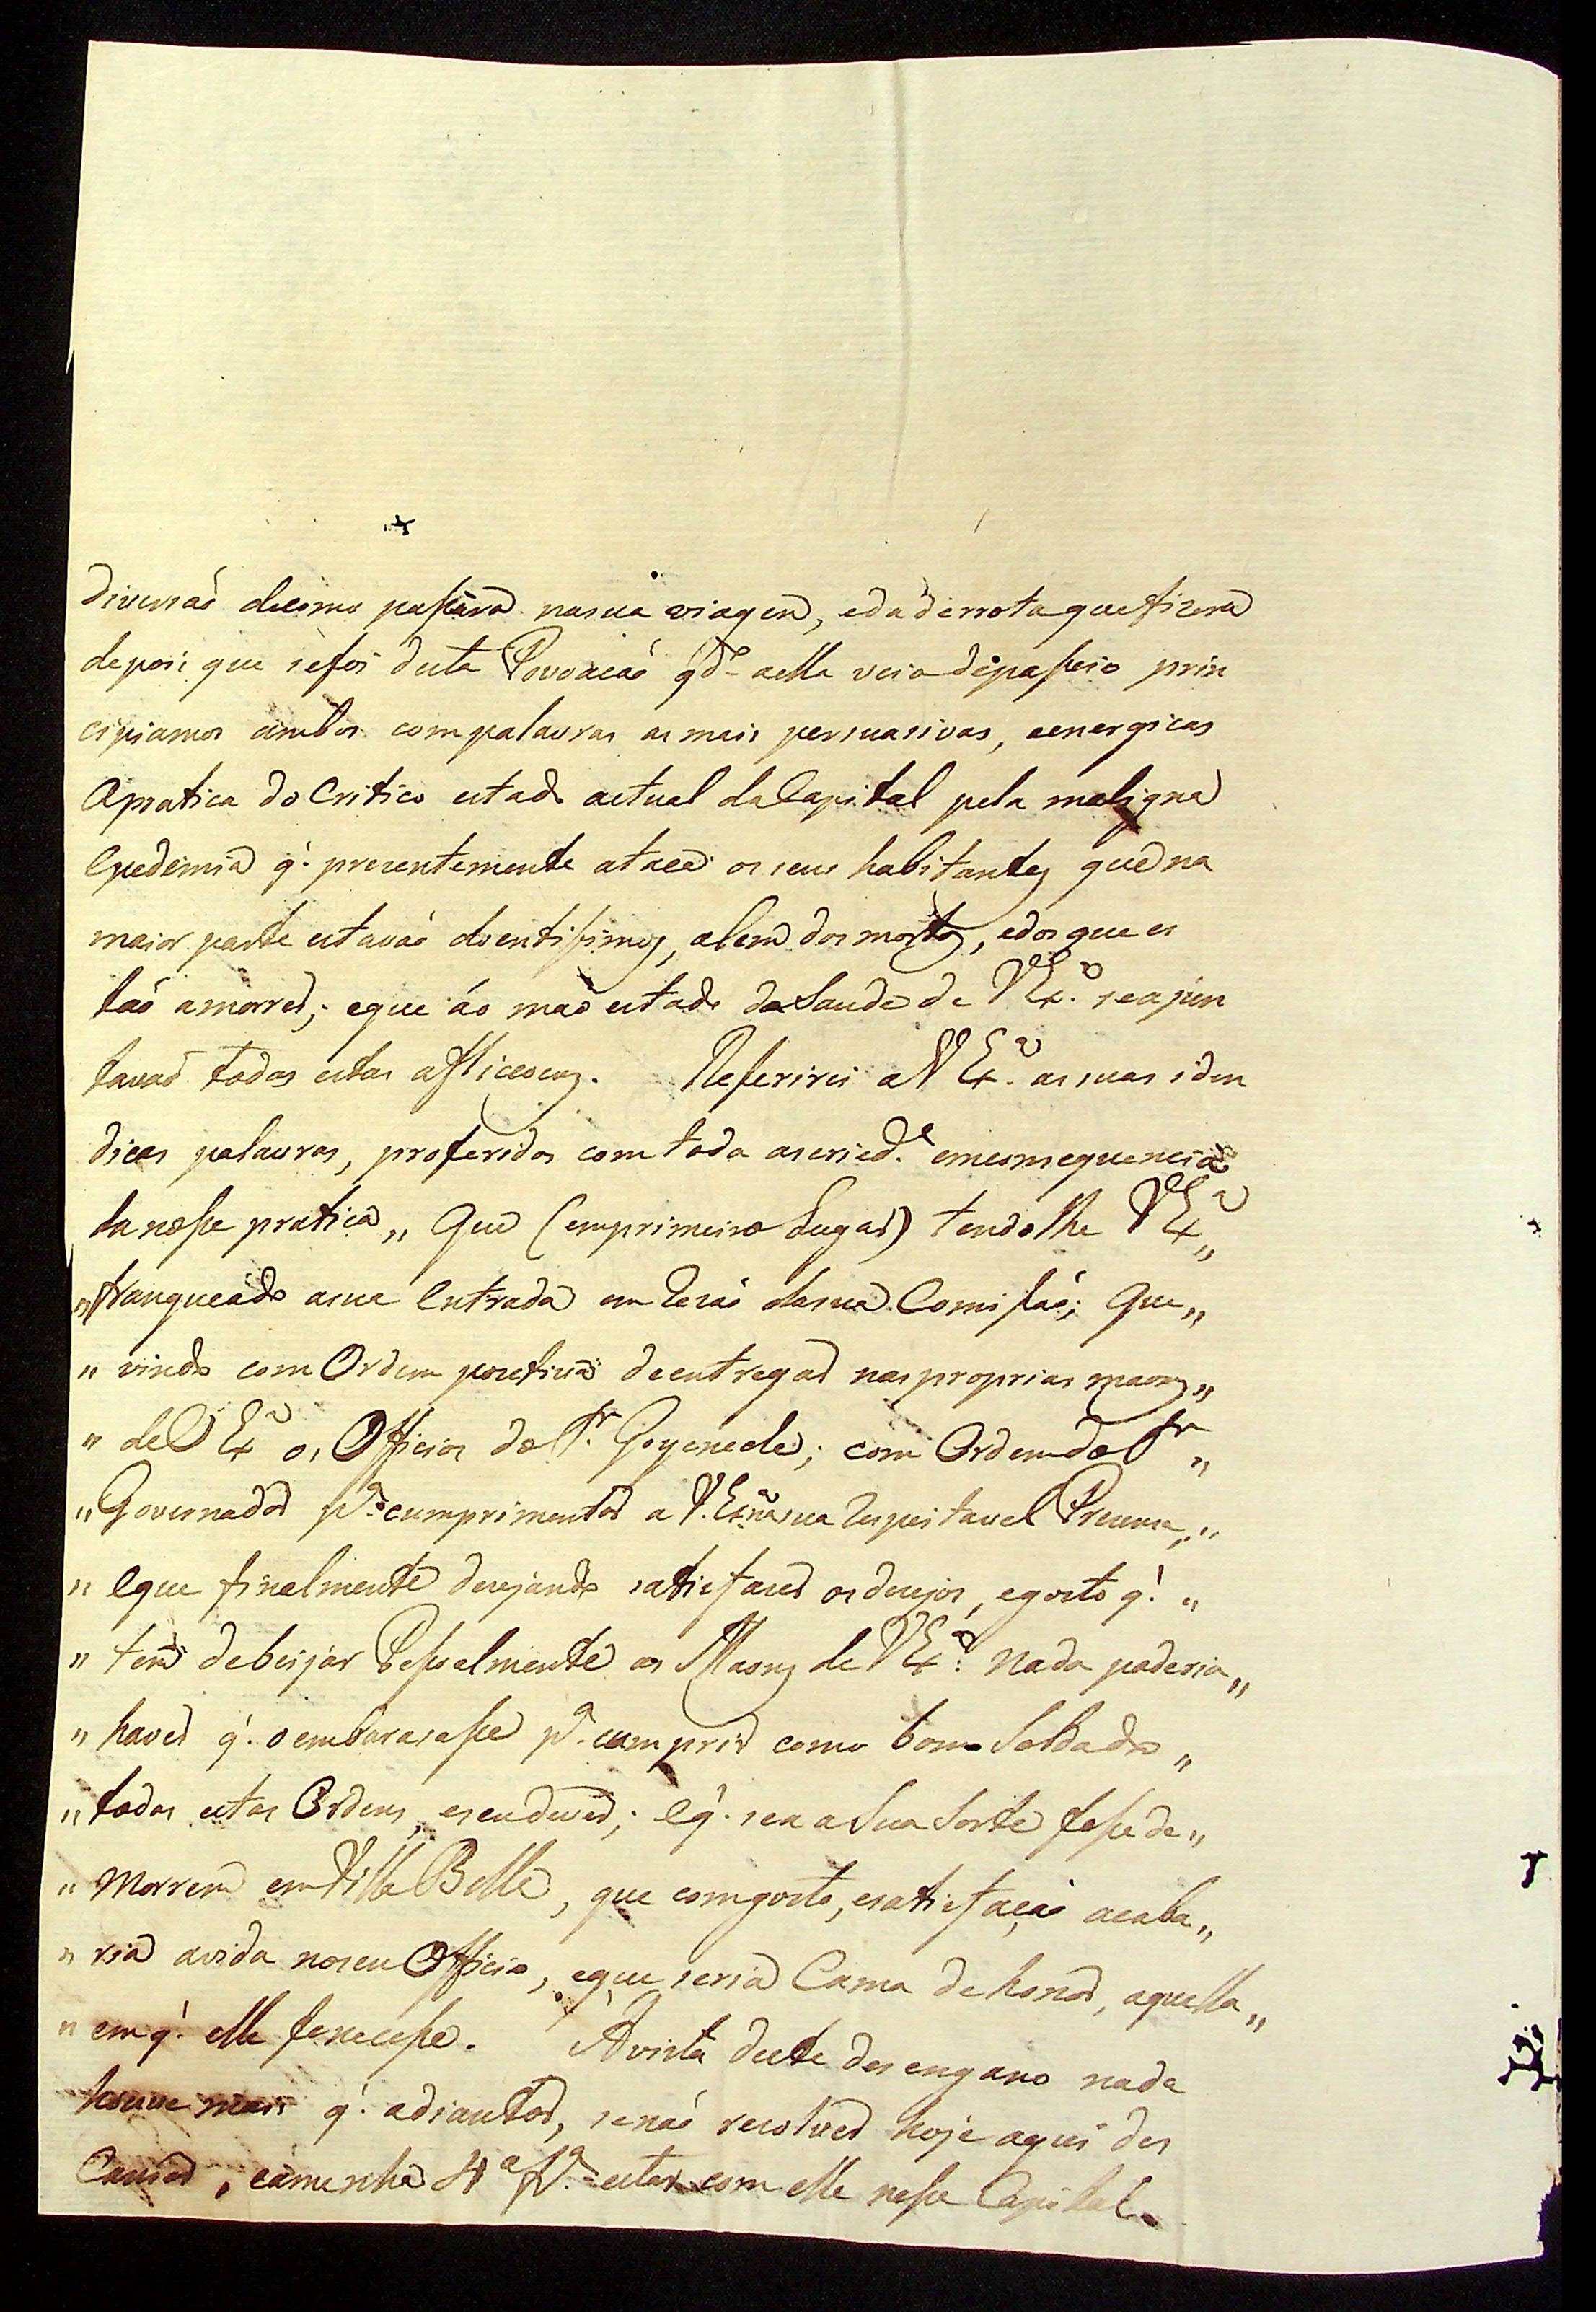 diversaó decomo paſsára nasua viagem, edaderrota quefizera
depois que sefoi desta Povoacaó qdo aella veio depaſseio prin
cipiamos ambos com palavras as mais persuasivas, eenergicas
apratica do Critico estado actual daCapital pela maligna
Epedemia q̃. prezentemente ataca os seus habitantes quena
maior parte estavaó doentiſsimos, alem dos mortos, edos que es
taó amorrer; eque áo mao estado daSaude de VExa. seajun
tavaó todas estas afflicoens. Referirei a VExa. assuas iden
dicas palavras, proferidas com toda aseriede. emconsequencia
da noſsa pratica „ Que (emprimeiro Lugar) tendolhe VExa „
„ franqueado asua Entrada em rezaó dasua Comiſsaó; Que „
„ vindo com Ordem pozetiva deentregar nas proprias maons „
„ de VExa os Officios do Sr. Goyeneche; com Ordem do Sr „
„ Governador pa. cumprimentar a V.Exa na sua respeitavel Prezença „
„ Eque finalmente dezejando satisfazer os dezejos, egosto q̃. „
„ tem debeijar Peſsoalmente as Maons de VExa. nada poderia „
„ haver q̃. o embaracaſse pa. cumprir como bom Soldado „
„ todas estas Ordens, eseudever; Eq̃. sea aSua Sorte foſse de „
„ Morrerem em Villa Bella, que comgosto, esatisfaçaó acaba „
„ ria avida noseu Officio, eque seria Cama dehonor, aquella „
„ emq̃. elle feneceſse. Avista deste desengano nada
houve mais q̃. adiantar, senaó resolver hoje aqui des
Cansar, eámenhã 4a fra. estar com elle neſsa Capital.